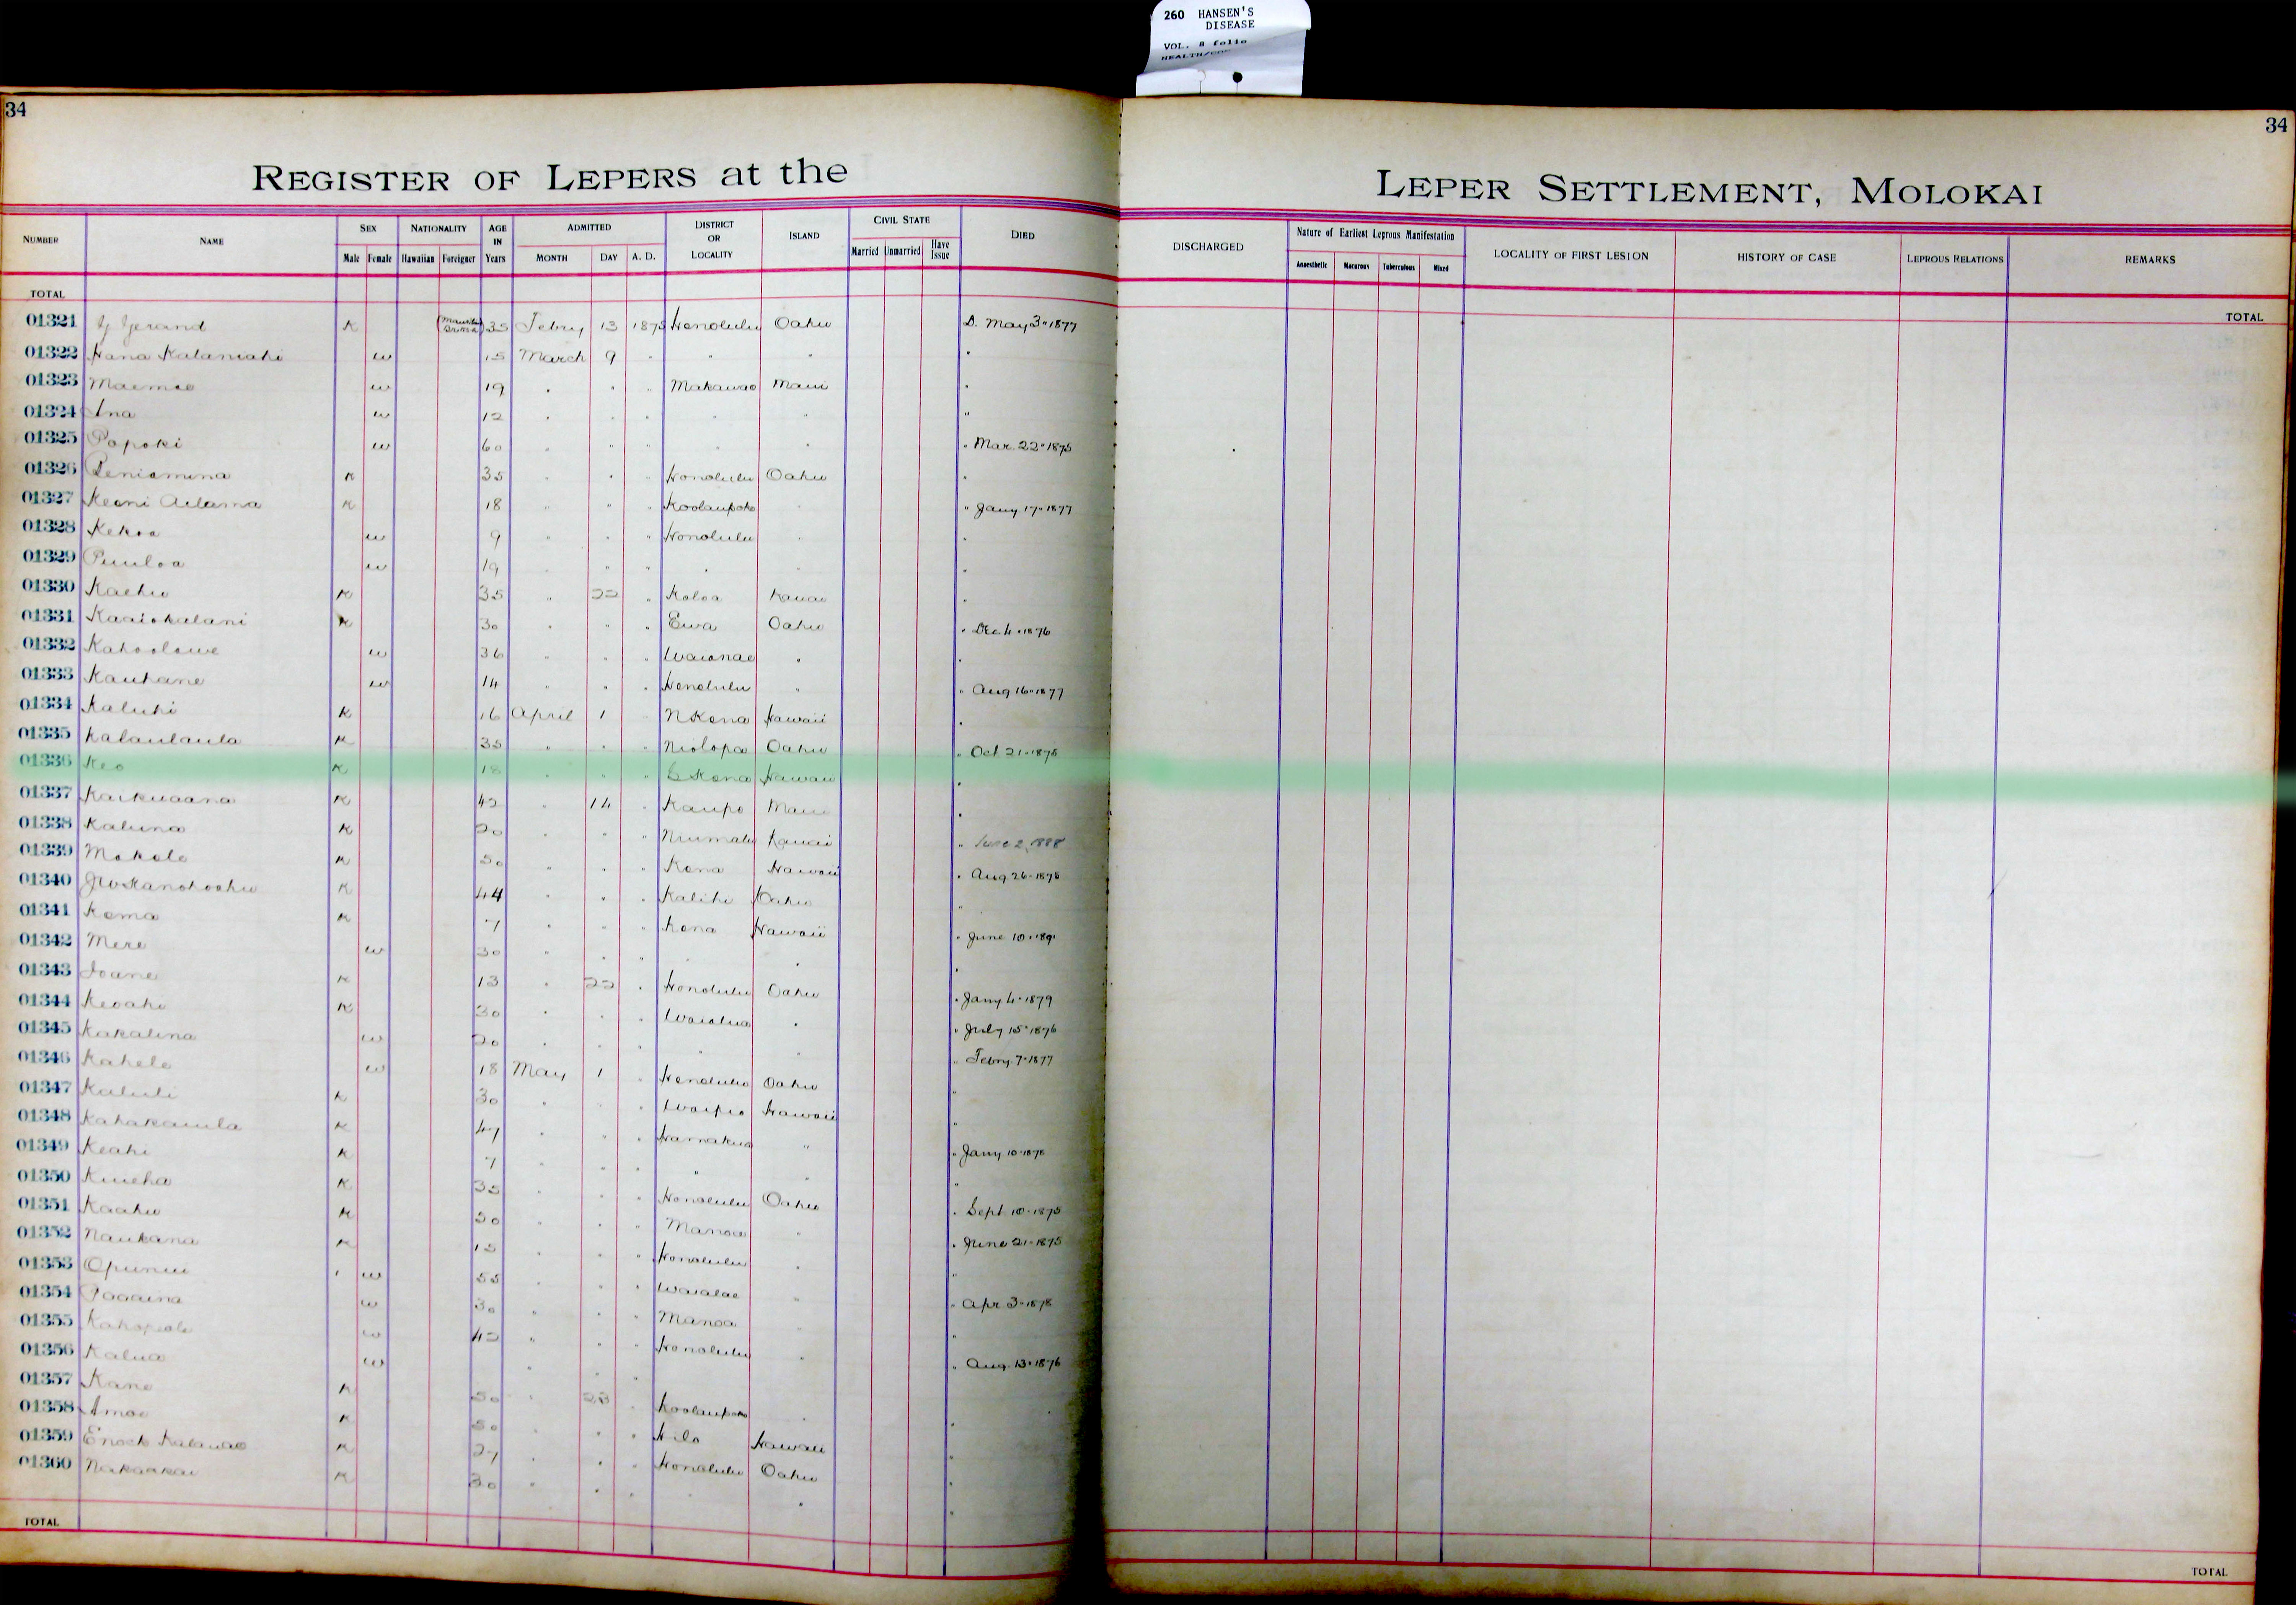 260 HANSEN'S
DISEASE
VOL. 8 folio
34
34
REGISTER OF LEPERS at the
LEPER SETTLEMENT, MOLOKAI
NUMBER NAME SEX NATIONALITY AGE IN Years ADMITTED DISTRICT OR LOCALITY ISLAND CIVIL STATE DIED
Male Female Hawaiian Foreigner MONTH DAY A. D. Married Unmarried Have Issue
DISCHARGED Nature of Earliest Leprous Manifestation LOCALITY OF FIRST LESION HISTORY OF CASE LEPROUS RELATIONS REMARKS
Anaesthetic Macurous Tuberculous Mixed
TOTAL
TOTAL
01321 Gerand K 35 Febry 13 1875 Honolulu Oahu D. May 3 " 1877
01322 Hana Kalaniahi w 15 March 9 " " " "
01323 Maemae w 19 " " " Makawao Maui "
01324 Ana w 12 " " " " " "
01325 Popoki w 60 " " " " " " Mar. 22 " 1875
01326 Peniamina K 35 " " " Honolulu Oahu "
01327 Keoni Adama K 18 " " " Koolaupoko " " Jany 17 " 1877
01328 Kekoa w 9 " " " Honolulu " "
01329 Puuloa w 19 " " " " " "
01330 Kaehu K 35 " 22 " Koloa Kauai "
01331 Kaaiokalani K 30 " " " Ewa Oahu " Dec 4 " 1876
01332 Kahoolawe w 36 " " " Waianae " "
01333 Kauhane w 14 " " " Honolulu " " Aug 16 " 1877
01334 Kaluhi K 16 April 1 " N Kona Hawaii "
01335 Kalaulaula K 35 " " " Niolopa Oahu " Oct 21 - 1878
01336 Keo K 18 " " " Kona Hawaii "
01337 Kaikuaana K 42 " 14 " Kaupo Maui "
01338 Kaluna K 20 " " " Niumalu Kauai " June 2, 1888
01339 Makole K 50 " " " Kona Hawaii " Aug 26 - 1878
01340 JW Kanohoahu K 44 " " " Kalihi Oahu "
01341 Kema K 7 " " " Kona Hawaii " June 10 - 1891
01342 Mere w 30 " " " " " "
01343 Ioane K 13 " 22 " Honolulu Oahu " Jany 4 - 1879
01344 Keoahi K 30 " " " Waialua " " July 15 " 1876
01345 Kakalina w 20 " " " " " " Febry. 7 - 1877
01346 Kahele w 18 May 1 " Honolulu Oahu "
01347 Kaluli K 30 " " " Waipio Hawaii "
01348 Kahakauila K 47 " " " Hamakua " " Jany 10 - 1878
01349 Keahi K 7 " " " " " "
01350 Kuieha K 35 " " " Honolulu Oahu " Sept 10 - 1875
01351 Kaahu K 50 " " " Manoa " " June 21 - 1875
01352 Naukana K 15 " " " Honolulu " "
01353 Opunui w 55 " " " Waialae " " Apr 3 - 1878
01354 Paaaina w 30 " " " Manoa " "
01355 w 42 " " " Honolulu " " Aug. 13 " 1876
01356 Kalua w " " "
01357 Kane K 50 " 23 " Koolaupoko " "
01358 Amoe K 50 " " " Hilo Hawaii "
01359 Enoch Kalauao K 27 " " " Honolulu Oahu "
01360 Nakaakai K 30 " " " " " "
TOTAL
TOTAL